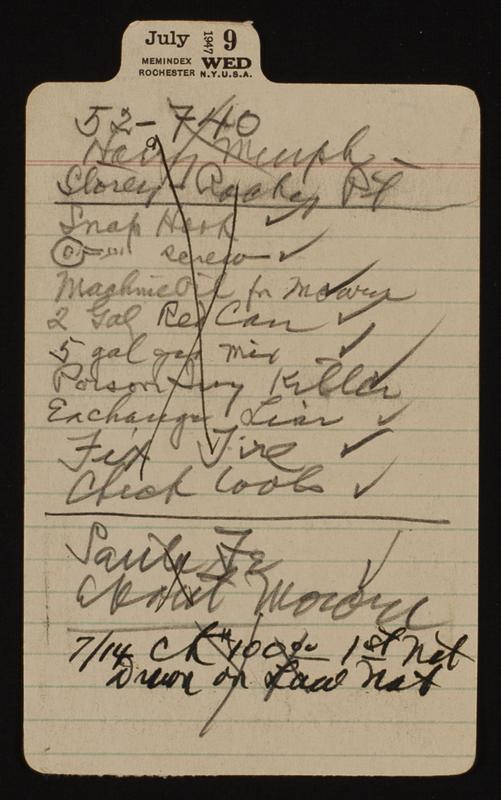 July 1947 9
MEMINDEX WED
ROCHESTER N.Y.U.S.A.
52-740
Harry Murph
Storey - Rocky Pt
Snap Hook
screw
Machine Oil for Mower
2 Gal Red Can
5 gal gas mix
Poison Ivy Killer
Exchange
Fix Tire
Check tools
Santa Fe
About Mower
7/14 CK #100 00 1st Nat
Drawn on Nat